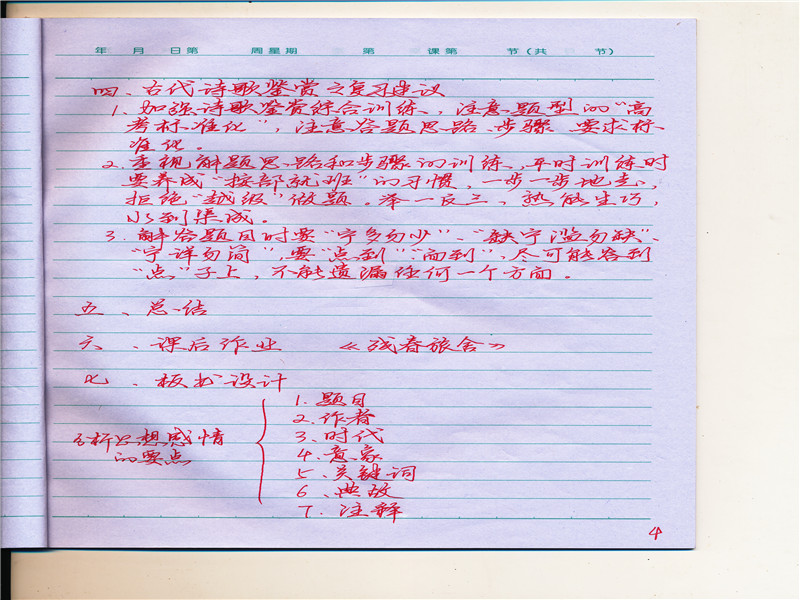 年 月 日第 周星期 第 课第 节(共 节)
四、古代诗歌鉴赏之复习建议
1、加强诗歌鉴赏综合训练,注意题型的“高
考标准化”,注意答题思路、步骤、要求标
准化。
2、重视解题思路和步骤的训练,平时训练时
要养成“按部就班”的习惯,一步一步地走,
拒绝“越级”做题。举一反三,熟能生巧,
水到渠成。
3、解答题目时要“宁多勿少”、“宁滥勿缺”、
“宁详勿简”,要“点到”“面到”,尽可能答到
“点”子上,不能遗漏任何一个方面。
五、总结
六、课后作业 《残春旅舍》
七、板书设计
分析思想感情
的要点
1、题目
2、作者
3、时代
4、意象
5、关键词
6、典故
7、注释
4